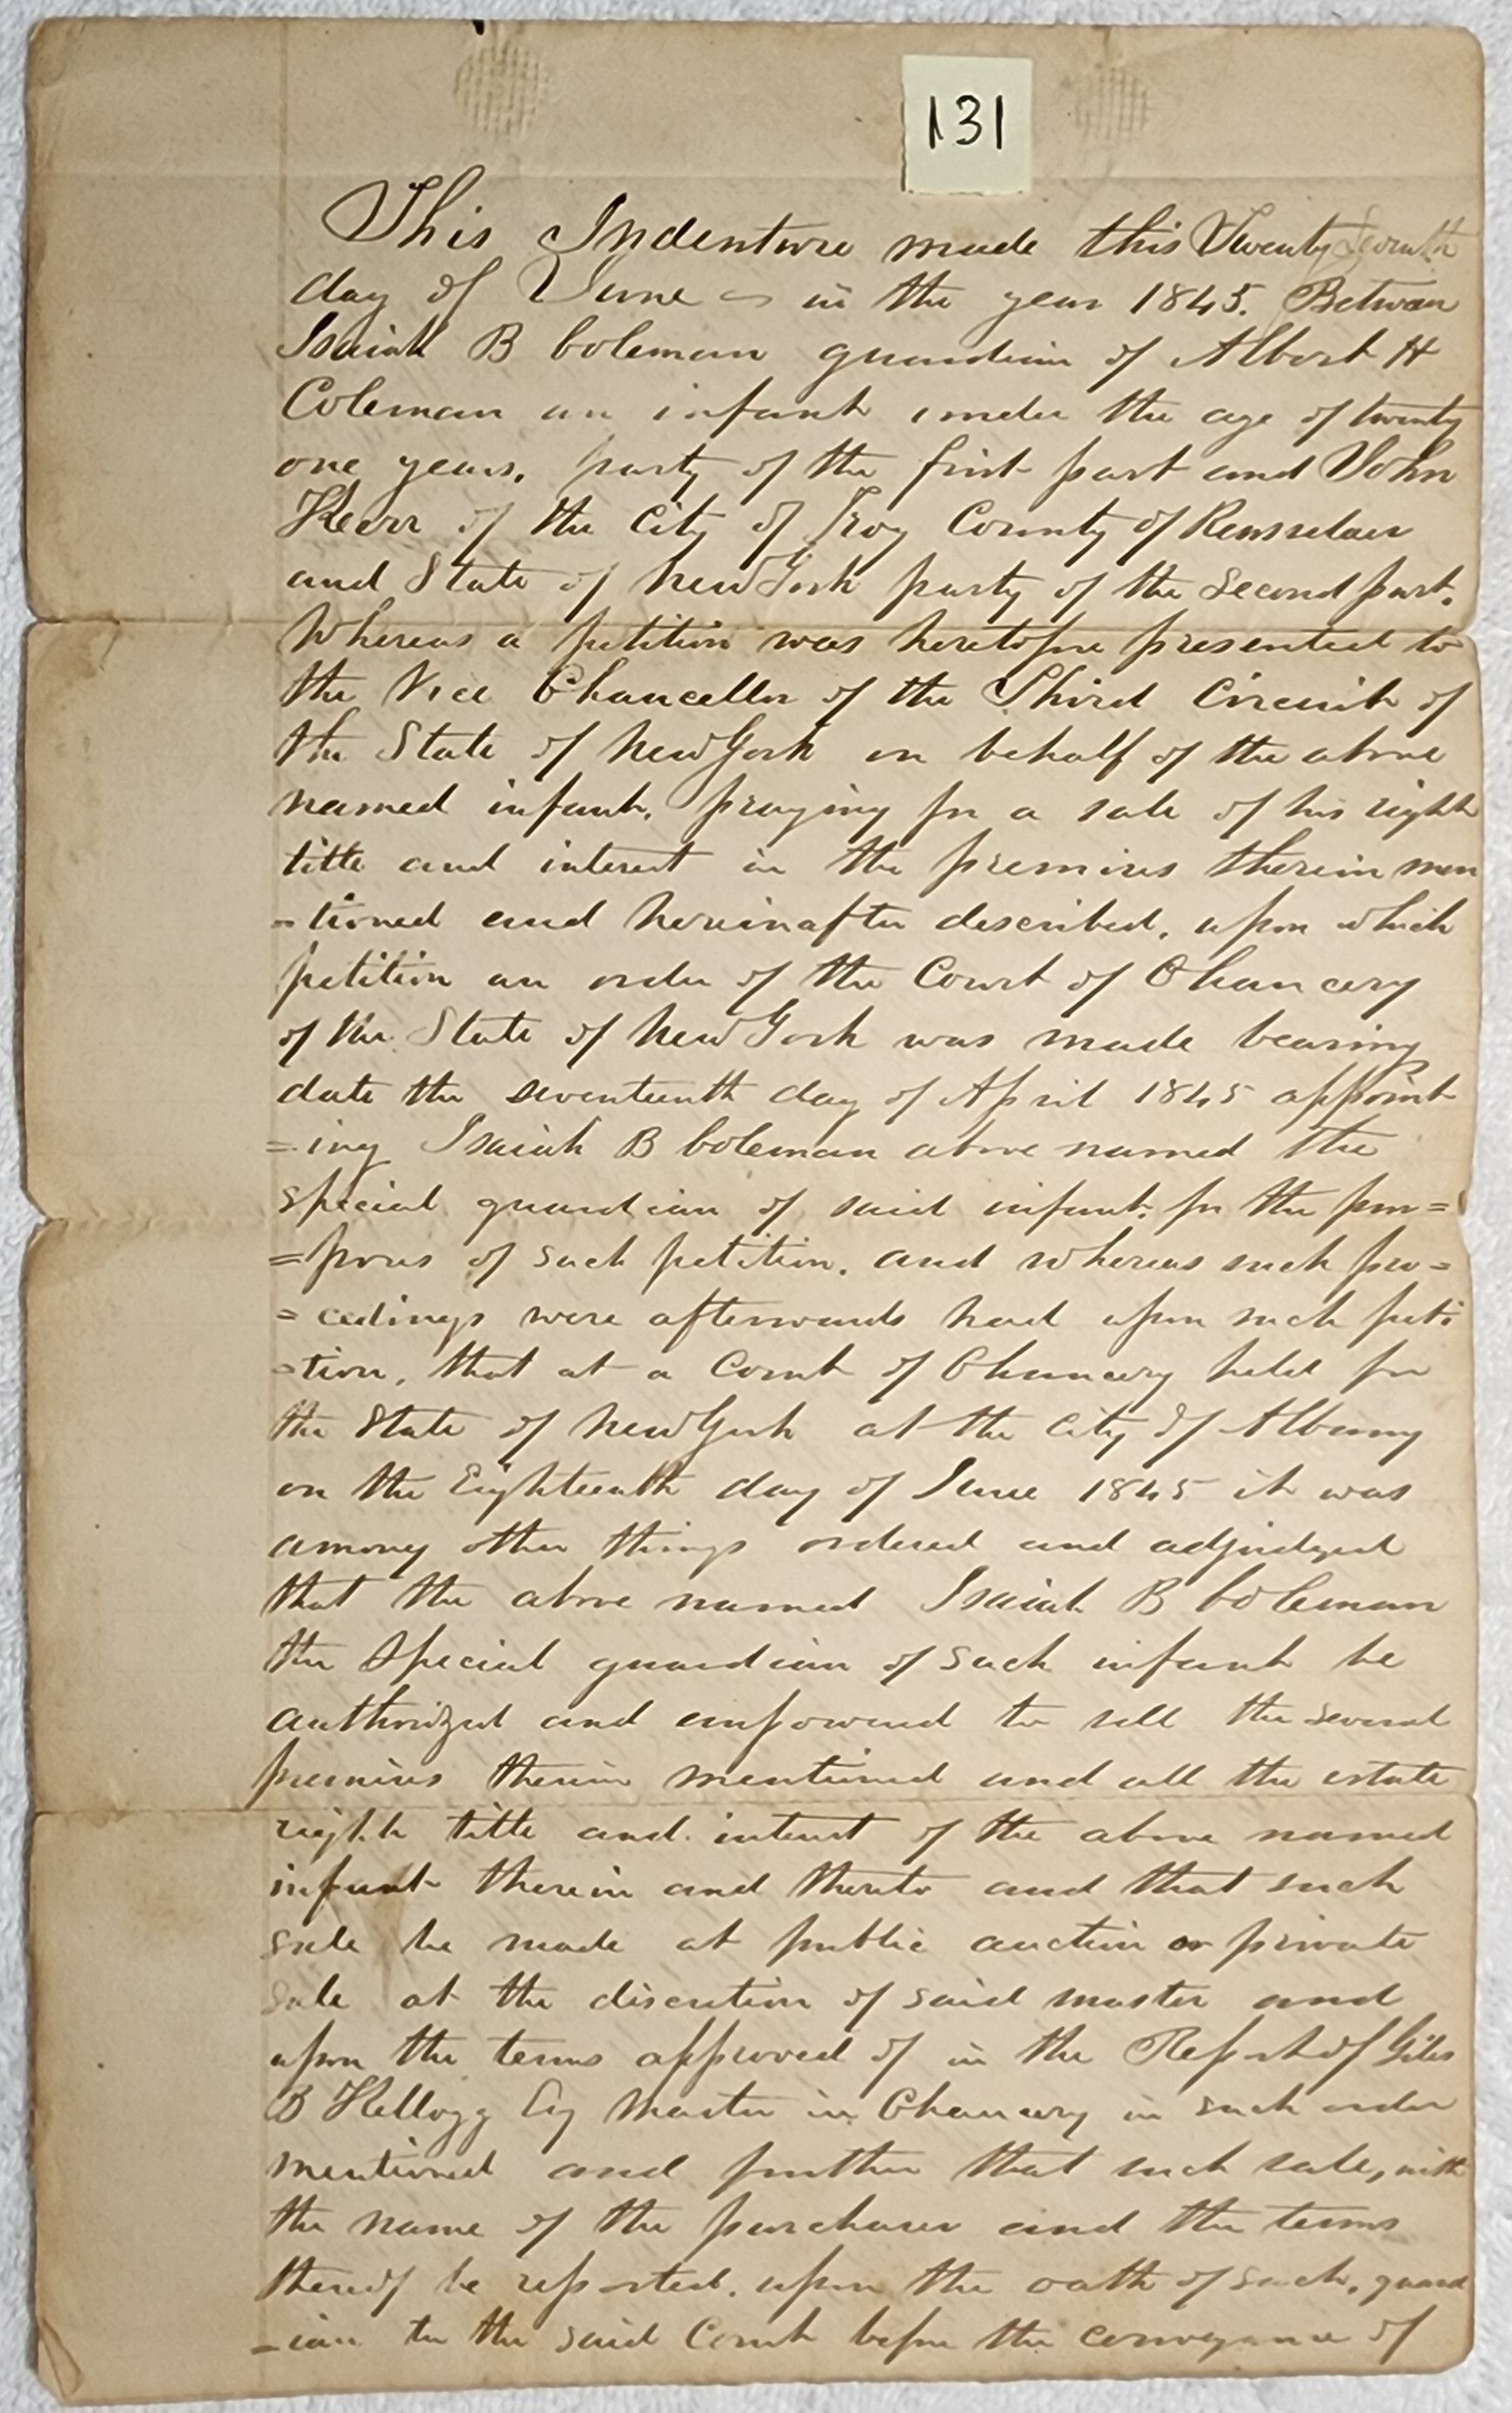 131
This Indenture made this Twenty Seventh
day of June in the year 1845. Between
Isaiah B Coleman guardian of Albert H
Coleman an infant under the age of twenty
one years. party of the first part and John
Kerr of the City of Troy County of Rensselaer
and State of New York party of the Second part.
Whereas a petition was heretofore presented to
the Vice Chancellor of the Third Circuit of
the State of New York on behalf of the above
named infant, praying for a sale of his right
title and interest in the premises therein men
-tioned and hereinafter described, upon which
petition an order of the Court of Chancery
of the State of New York was made bearing
date the seventeenth day of April 1845 appoint
=ing Isaiah B Coleman above named the
special guardian of said infant. for the pur=
=poses of such petition. and whereas such pro=
=ceedings were afterwards had upon such peti
=tion, that at a Court of Chancery held for
the State of New York at the City of Albany
on the Eighteenth day of June 1845 it was
among other things ordered and adjudged
that the above named Isaiah B Coleman
the Special guardian of such infant be
authorized and empowered to sell the several
premises therein mentioned and all the estate
right title and interest of the above named
infant therein and thereto and that such
sale be made at public auction or private
sale at the discretion of said master and
upon the terms approved of in the Report of Giles
B Kellogg Esq Master in Chancery in such order
mentioned and further that such sale, with
the name of the purchaser and the terms
thereof be reported. upon the oath of such, guard
=ian to the said Court before the conveyance of